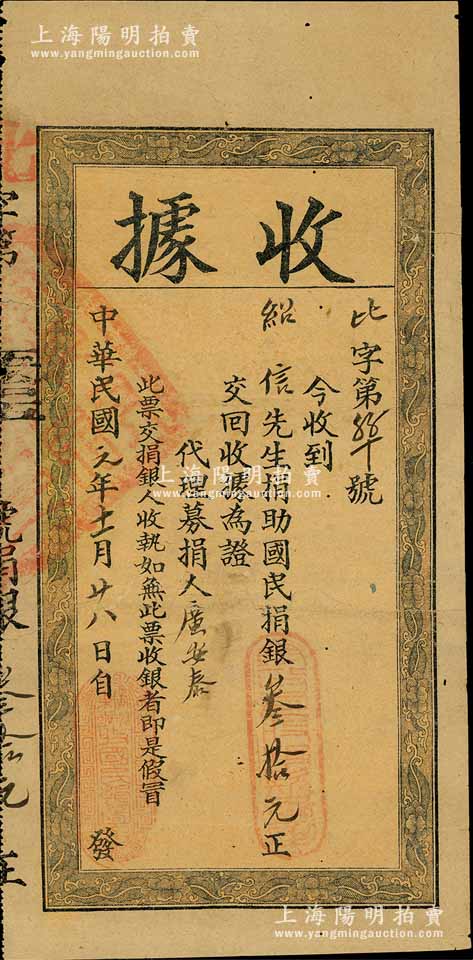 上海陽明拍賣
www.yangmingauction.com
收據
比字第號
今收到
紹信先生捐助國民捐銀叁拾元正
交回收據為證
代理募捐人廣安泰
此票交捐銀人收執如無此票收銀者即是假冒
中華民國元年十一月廿八日自發
字第
號捐銀
上海陽明拍賣
www.yangmingauction.com
上海陽明拍賣
www.yangmingauction.com